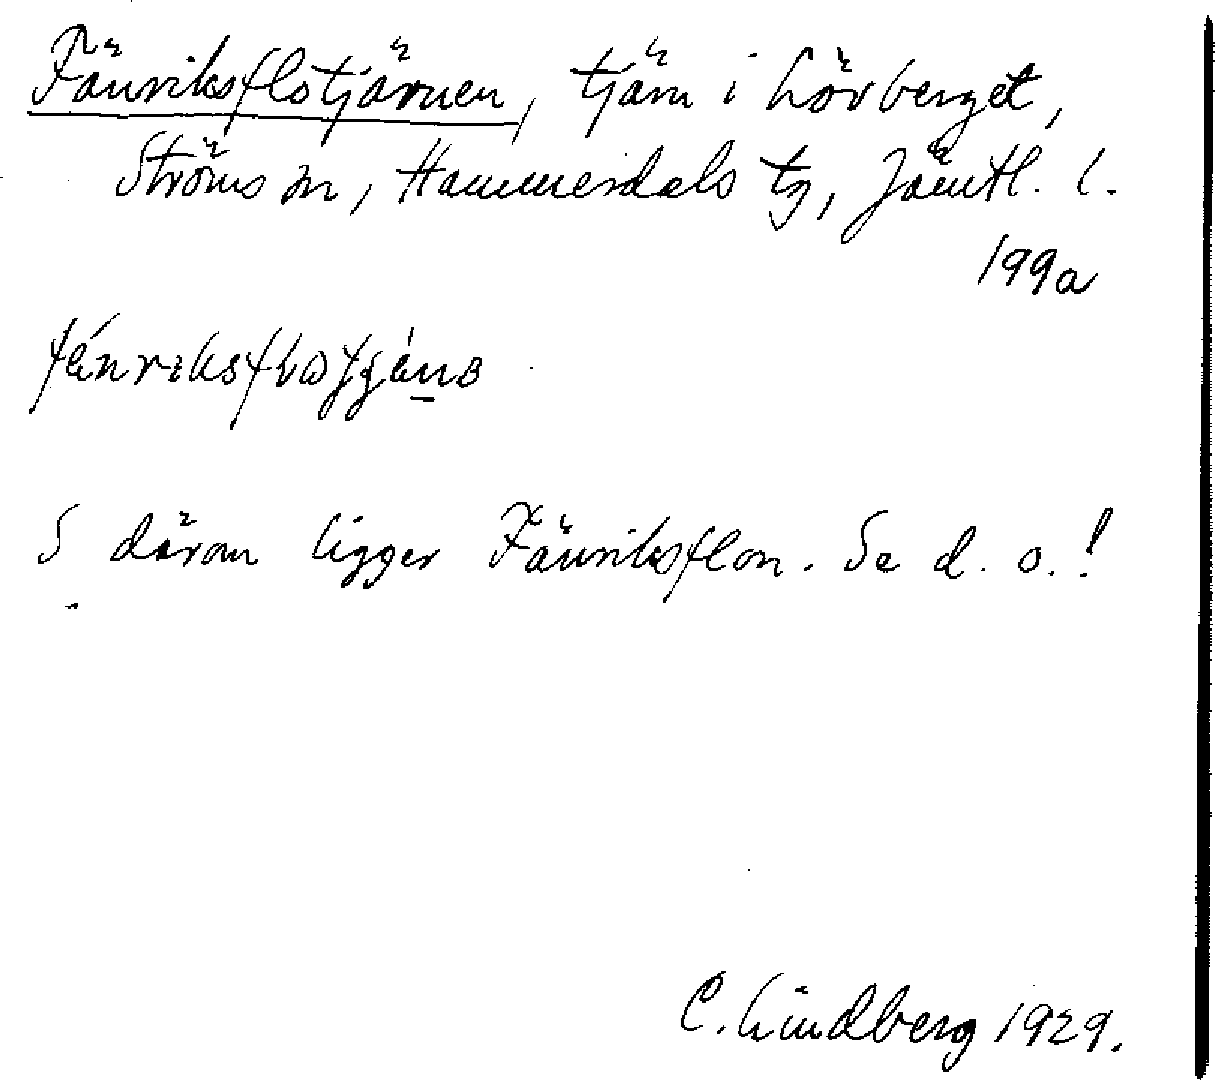 Fänriksflotjärnen, tjärn i Lövberget,
Ströms sn, Hammerdals tg, Jämtl. l.
199a
S därom ligger Fänriksflon. Se d. o.!
C. Lindberg 1929.